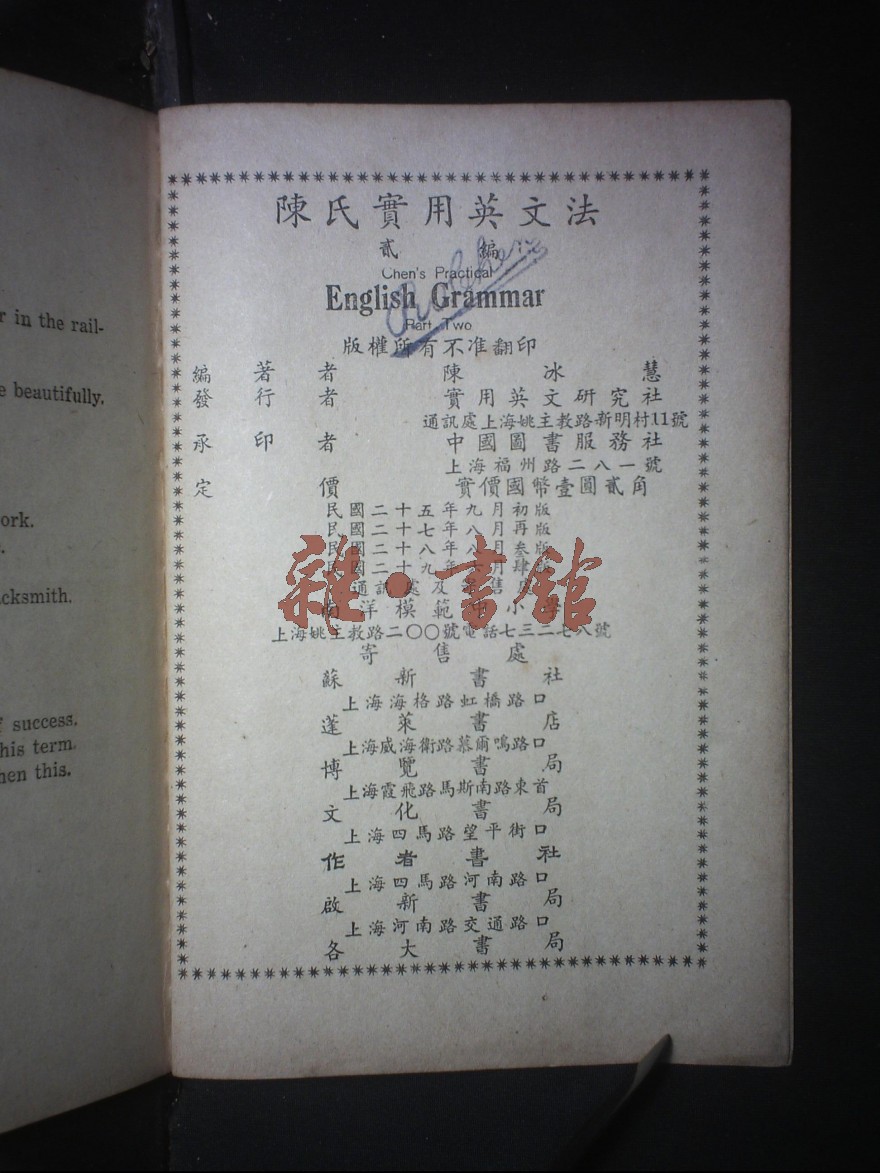 r in the rail-
e beautifully.
ork.
cksmith.
f success.
his term.
hen this.
陳氏實用英文法
貳編
Chen's Practical
English Grammar
Part Two
版權所有不准翻印
編著者 陳冰慧
發行者 實用英文研究社
通訊處上海姚主教路新明村11號
承印者 中國圖書服務社
上海福州路二八一號
定價 實價國幣壹圓貳角
民國二十五年九月初版
民國二十七年八月再版
民國二十八年八月叁版
民國二十九年月肆版
通訊處及售處
南洋模範中小學
上海姚主教路二〇〇號電話七三二七八號
寄售處
蘇新書社
上海海格路虹橋路口
蓬萊書店
上海威海衛路慕爾鳴路口
博覽書局
上海霞飛路馬斯南路東首
文化書局
上海四馬路望平街口
作者書社
上海四馬路河南路口
啟新書局
上海河南路交通路口
各大書局
雜·書館